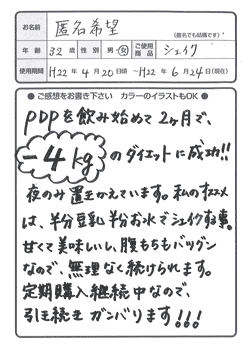 お名前 匿名希望
(匿名でも結構です)
年齢 32歳 性別 男・女 ご使用商品 シェイク
使用期間 H22年4月20日頃 ~H22年6月24日(現在)
●ご感想をお書き下さい カラーのイラストもOK●
PDPを飲み始めて2ヶ月で、
-4kgのダイエットに成功!!
夜のみ置きかえています。私のオススメ
は、半分豆乳半分お水でシェイクする事。
甘くて美味しいし、腹もちもバッグン
なので、無理なく続けられます。
定期購入継続中なので、
引き続きガンバります!!!